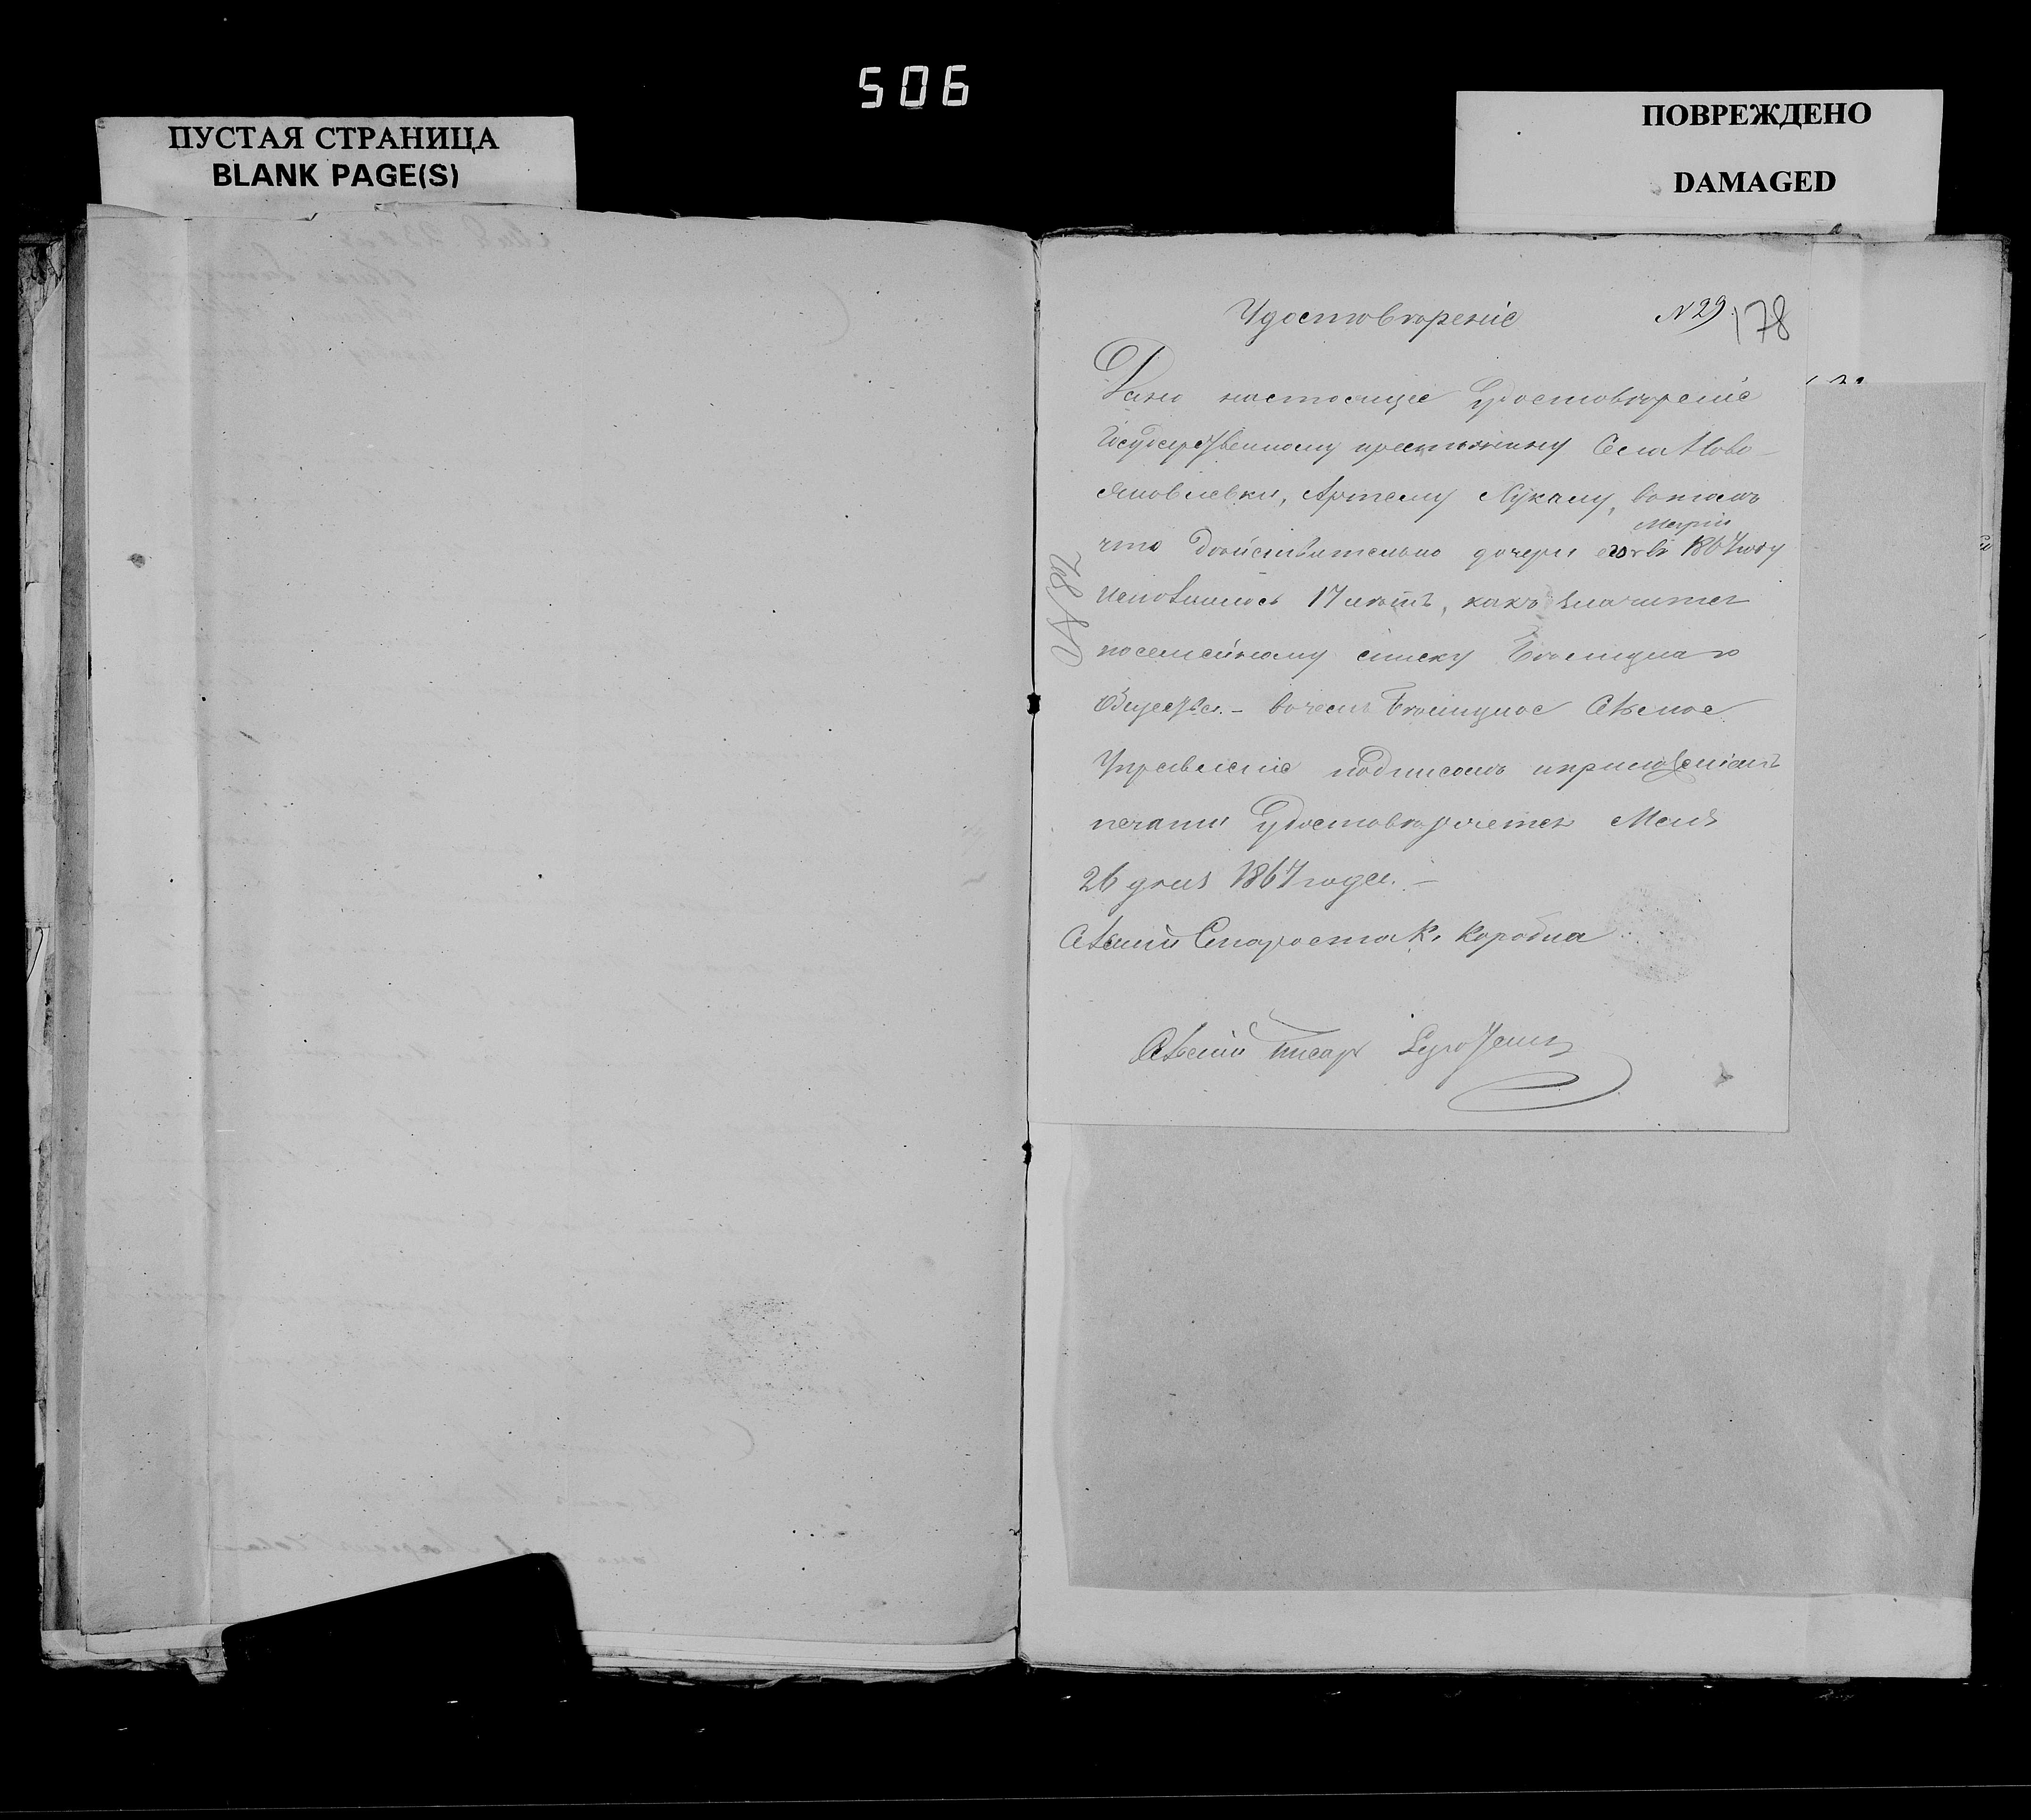 506
ПУСТАЯ СТРАНИЦА
BLANK PAGE(S)
ПОВРЕЖДЕНО
DAMAGED
Удостовѣреніе №29 178
Дано настоящее Удостовѣреніе
Государственному крестьянину Села Ново-
Яковлевки, Артему Лукашу, вотомъ
Маріи
что дѣйствительно дочери его въ 1867 году
исполнилось 17 лѣтъ, какъ значится
посемейному списку
Общества. – вочемъ Сѣлское
Управленіе подписомъ иприложеніемъ
печати удостовѣряется Маія
26 дня 1867 года. –
Сѣлскій Староста К. Коробка
Сѣлскій Писарь
№ 82